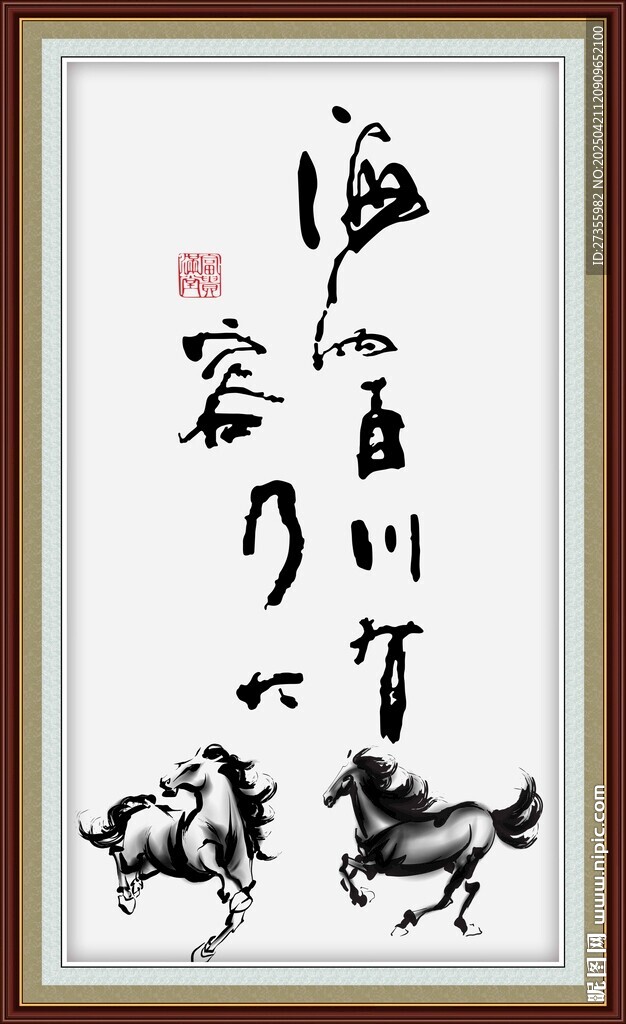 海納百川有
容乃大
富貴滿堂
ID:27355982 NO:20250421120909652100
昵图网 www.nipic.com